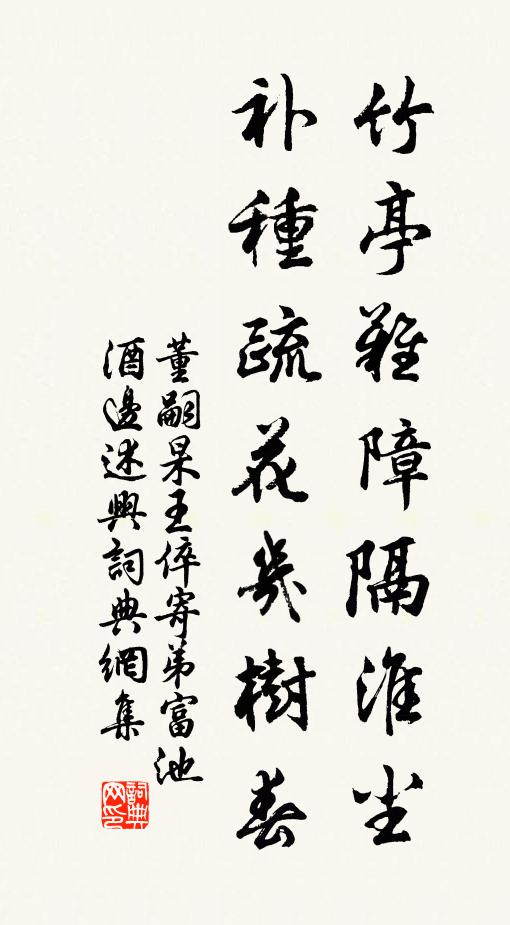 竹亭難障隔淮尘
补種疏花幾樹春
董嗣杲王倅寄弟富池
酒邊述興詞典網集
詞典网印